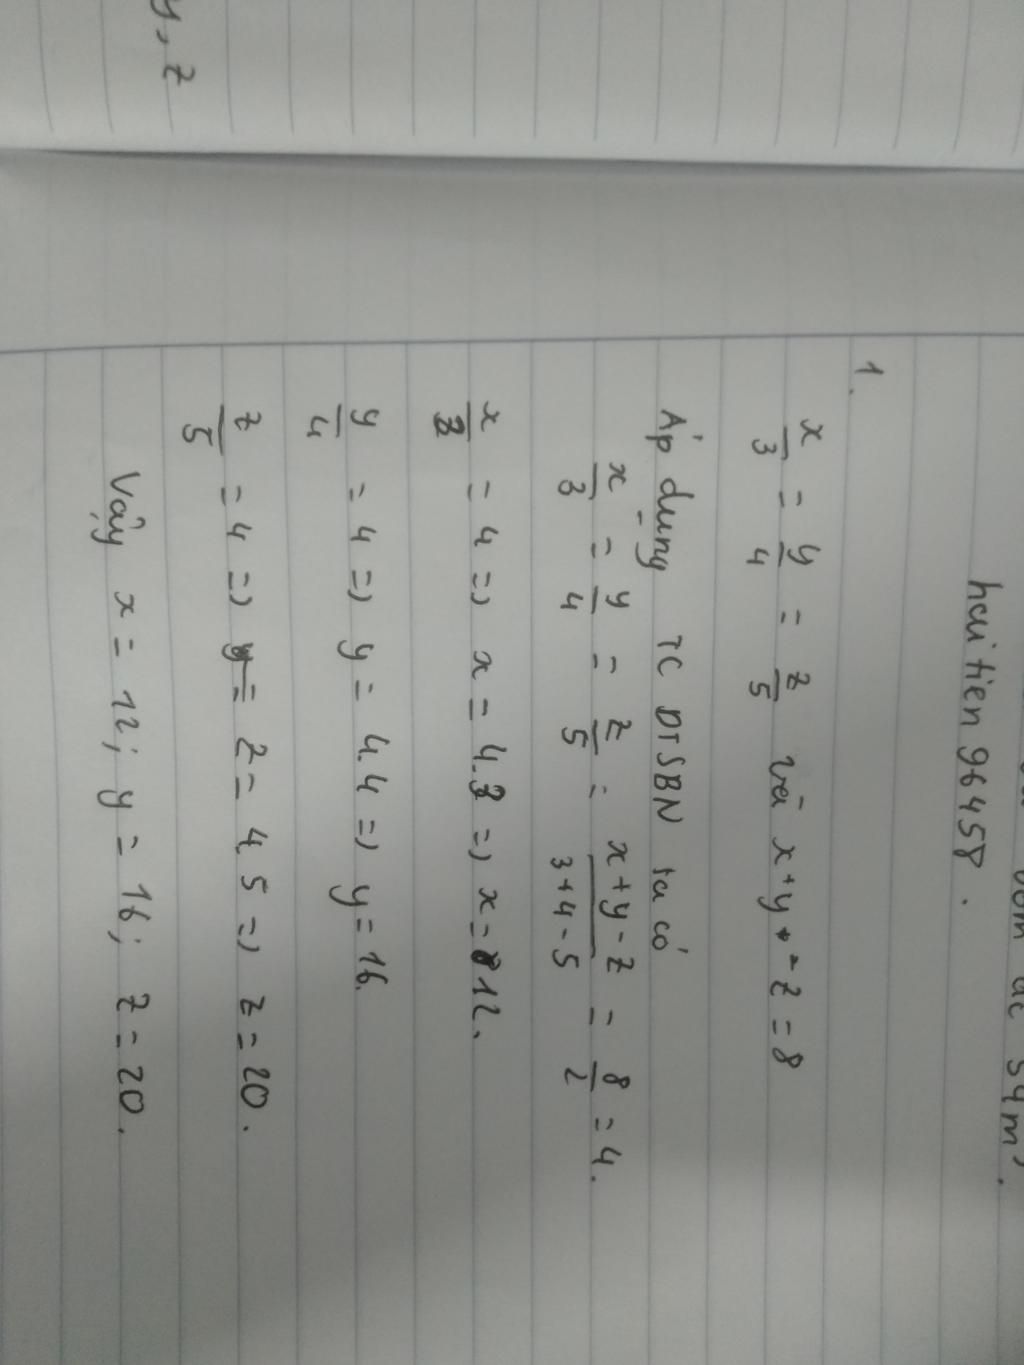 54m³.
hai tien 96458.
1.
x/3 = y/4 = z/5 và x+y-z=8
Áp dụng TC DTSBN ta có
x/3 = y/4 = z/5 = x+y-z/3+4-5 = 8/2 = 4.
x/3 = 4 => x = 4.3 => x = 12.
y/4 = 4 => y = 4.4 => y = 16.
z/5 = 4 => z = 4.5 => z = 20.
Vậy x = 12; y = 16; z = 20.
y, z